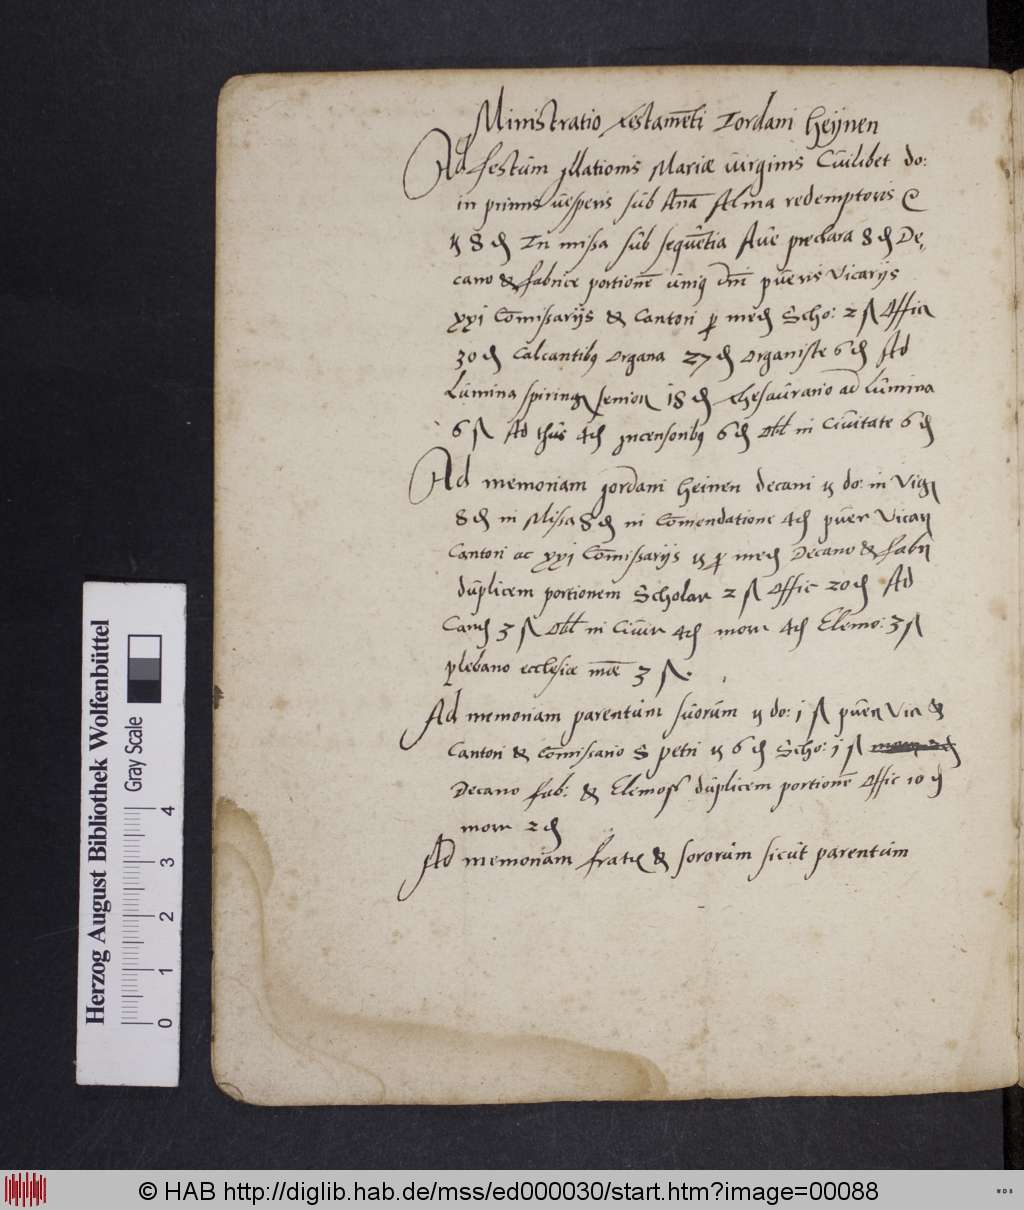 Ministratio testamēti Iordani Heijnen
Ad festum jllationis Mariæ virginis Cuilibet do:
in primis vesperis sub Ana Alma redemptoris &
8 In missa sub sequētia Ave preclara 8 De,
cano & fabrice portionē pueris Vicarijs
xxj Comissarijs & Cantori Scho: 2 ß Offic
30 Calcantibq organa 27 organiste 6 Ad
Lumina senior 18 thesaurario ad lumina
6 ß Ad thus 4 jncensoribq 6 Obl in Civitate 6
Ad memoriam jordani heinen decani do: in Vig
8 in Missa 8 in Comendatione 4 puer Vicar
Cantori ac xxj Comissarijs Decano & fabri
duplicem portionem Scholar 2 ß Offic 20 Ad
3 ß Obl in Civit 4 4 Elemo: 3 ß
plebano ecclesiæ 3 ß.
Ad memoriam parentum suorum do: j ß puer Vic &
Cantori & Comissario S petri 6 Scho: j ß
Decano fab: & Elemoss duplicem portionē Offic 10
2
Ad memoriam fratrū & sororum sicut parentum
Herzog August Bibliothek Wolfenbüttel
Gray Scale
0 1 2 3 4
© HAB http://diglib.hab.de/mss/ed000030/start.htm?image=00088